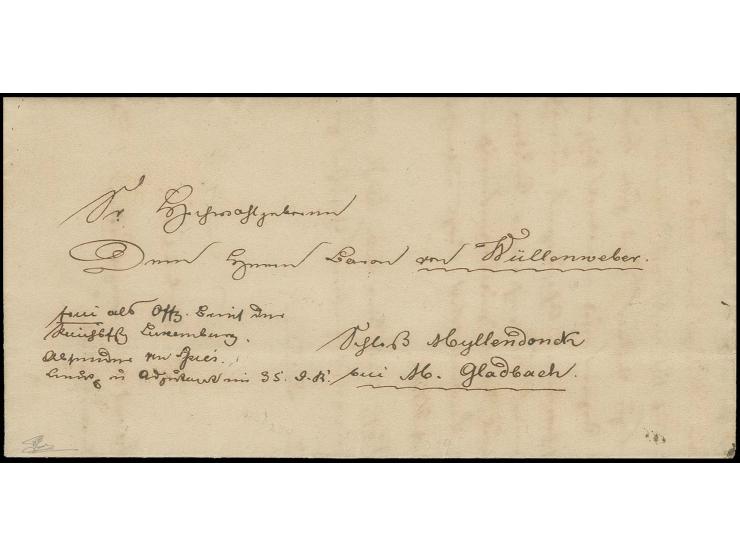 Sr. Hochwohlgeboren
Dem Herrn Baron von Wüllenweber.
frei als Offz. Brief der
Luxemburg.
Absender von
u Adjutant im 35. I. R.
Schloß Myllendonck
bei M. Gladbach.